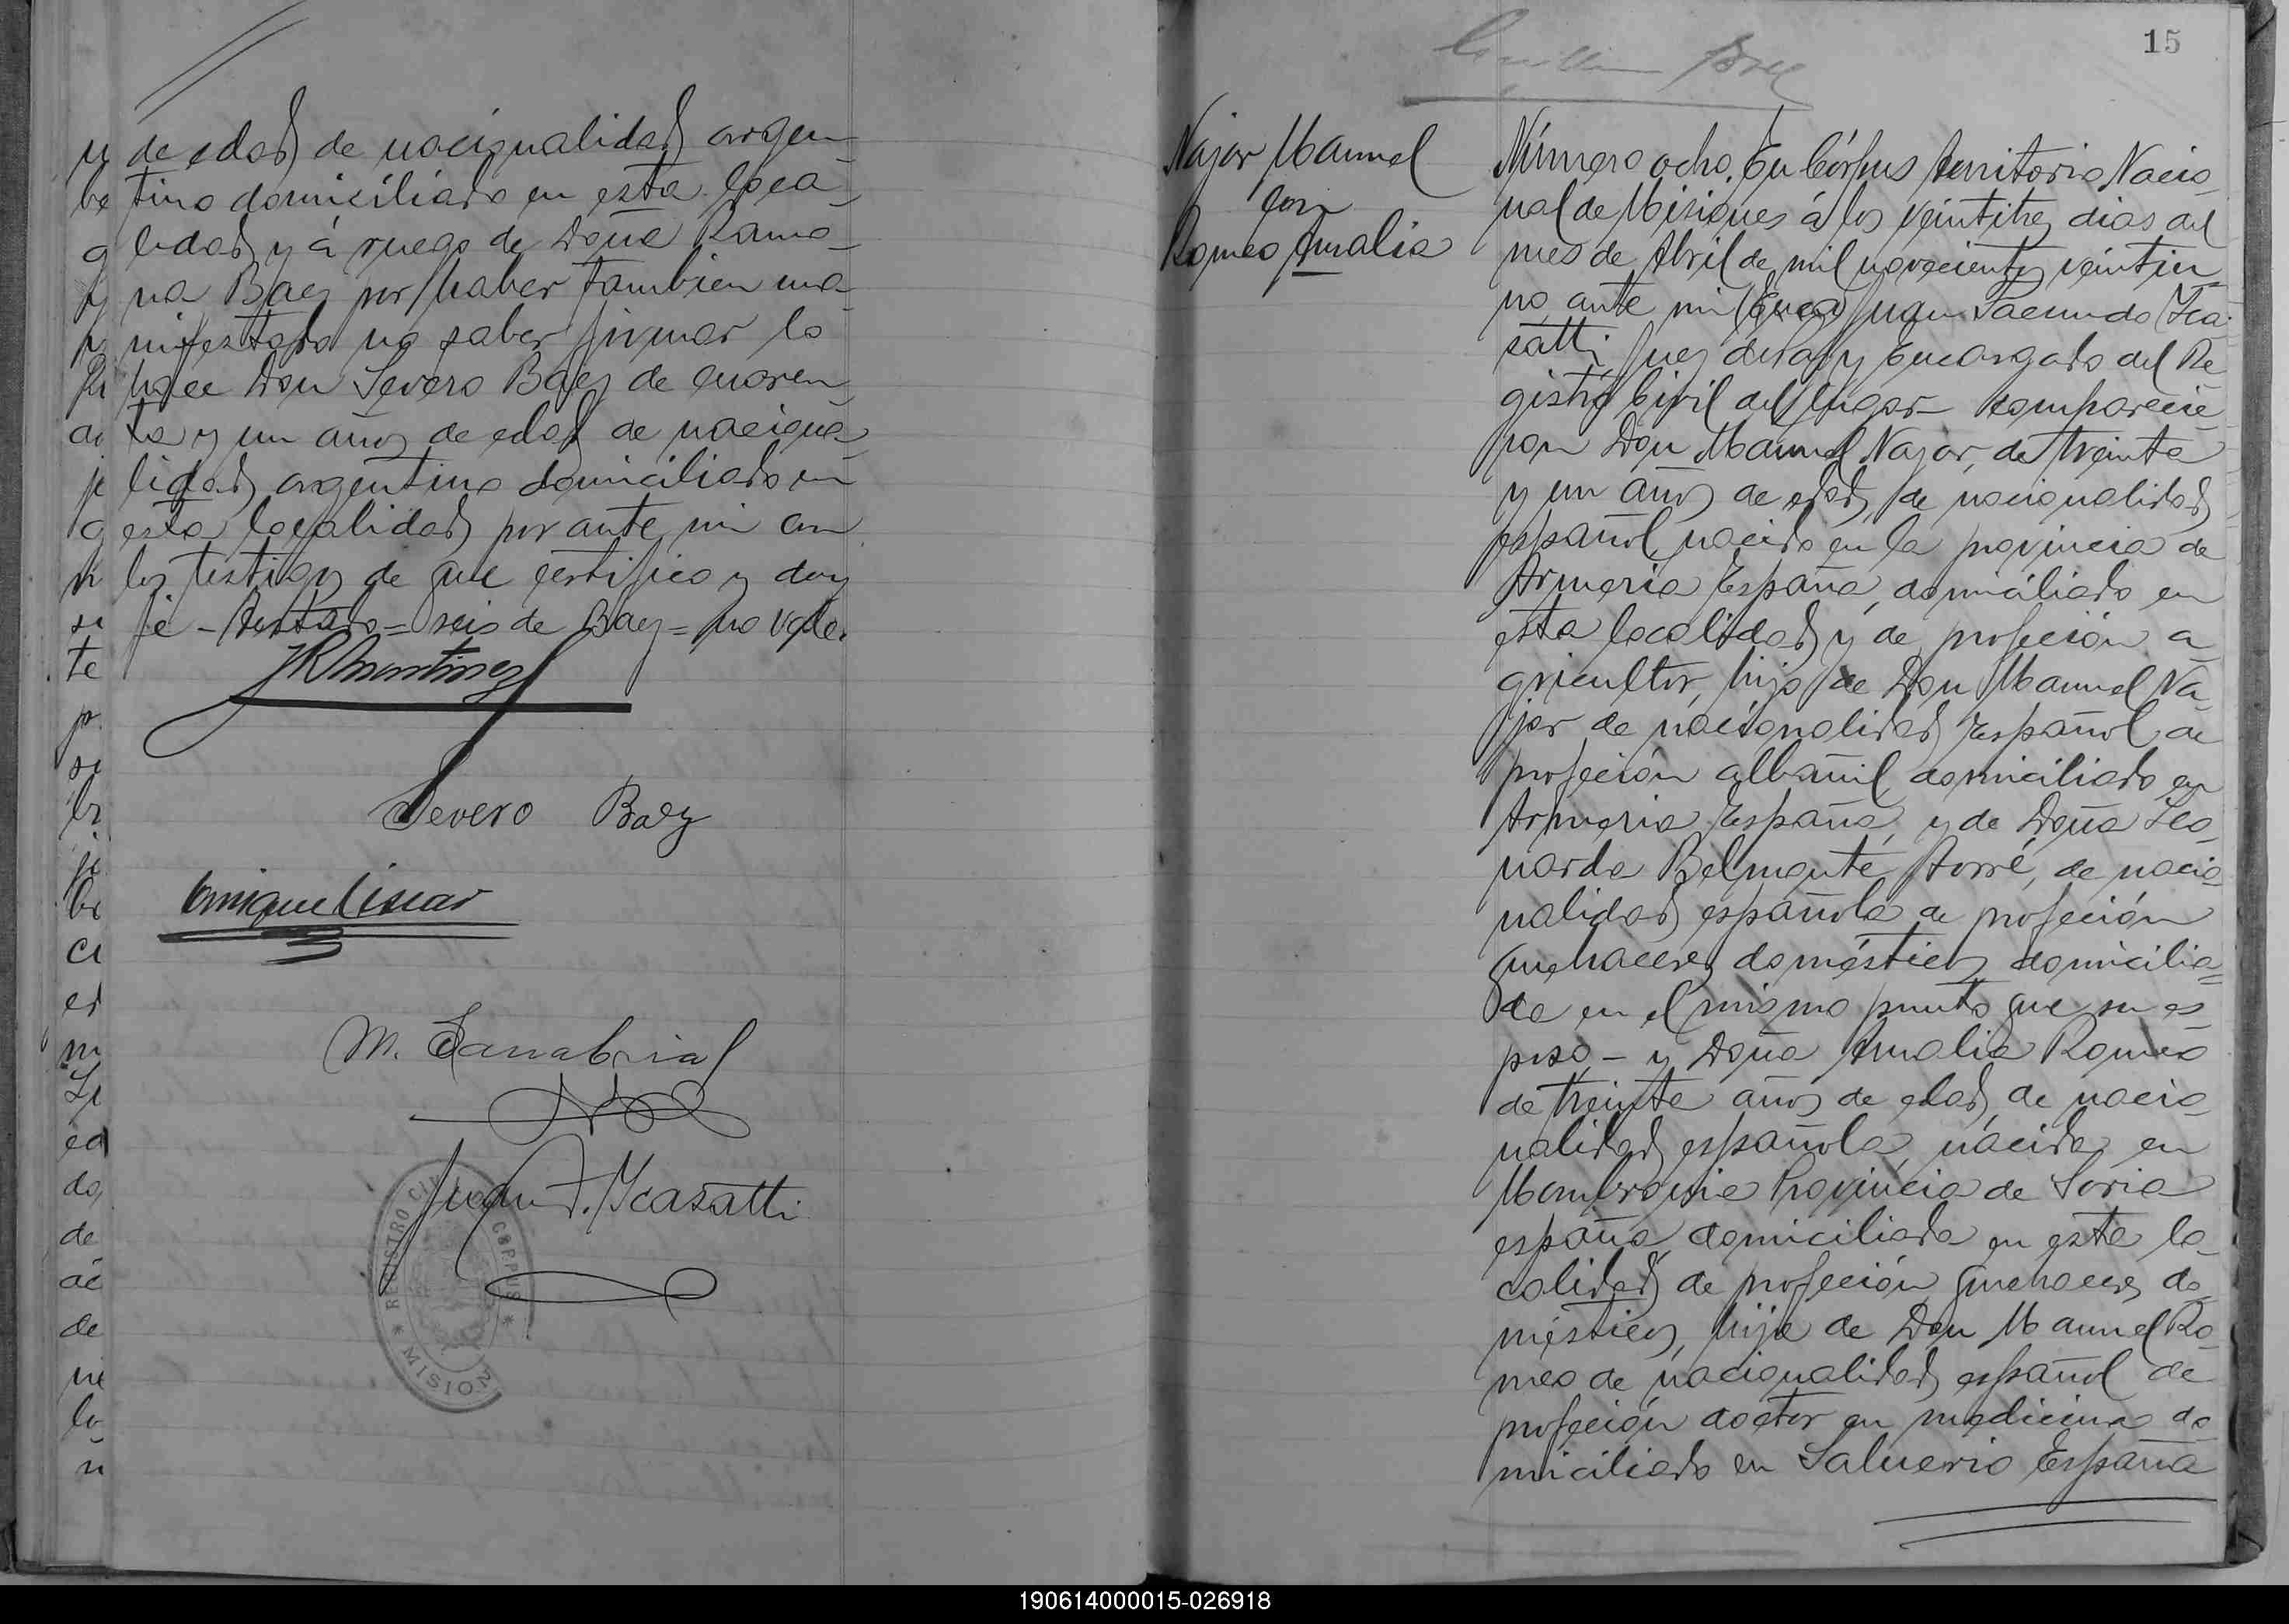 de edad de nacionalidad argen-
tino domiciliado en esta loca-
lidad y á ruego de Doña Ramo-
na Baez por haber tambien ma-
nifestado no saber firmar lo
hace Don Severo Baez de cuaren-
ta y un años de edad de naciona-
lidad argentino domiciliado en
esta localidad por ante mi con
los testigos de que certifico y doy
fé - Testado = seis de Baez = no vale.
JR Martinez
Severo Baez
M. Sanabria
Juan F. Ycasatti
REGISTRO CIVIL CORPUS
* MISIONES *
15
Najar Manuel
con
Romeo Amalia
Número ocho. En Córpus territorio Nacio-
nal de Misiones á los veintitres dias del
mes de Abril de mil novecientos veintiu-
no, ante mi Juan Facundo Yca-
satti, Juez de Paz y Encargado del Re-
gistro Civil del lugar - comparecie-
ron Don Manuel Najar, de treinta
y un años de edad, de nacionalidad
español, nacido en la provincia de
Armeria España, domiciliado en
esta localidad y de profeción a-
gricultor, hijo de Don Manuel Na-
jar de nacionalidad Español de
profeción albañil, domiciliado en
Armeria España, y de Doña Leo-
narda Belmonte Torré, de nacio-
nalidad española de profeción
quehaceres domésticos domicilia-
da en el mismo punto que su es-
poso - y Doña Amalia Romeo
de treinta años de edad, de nacio-
nalidad española, nacida en
Provincia de Soria
españa, domiciliada en esta lo-
calidad, de profeción quehaceres do-
mésticos, hija de Don Manuel Ro-
meo de nacionalidad español de
profeción doctor en medicina do-
miciliado en España
190614000015-026918